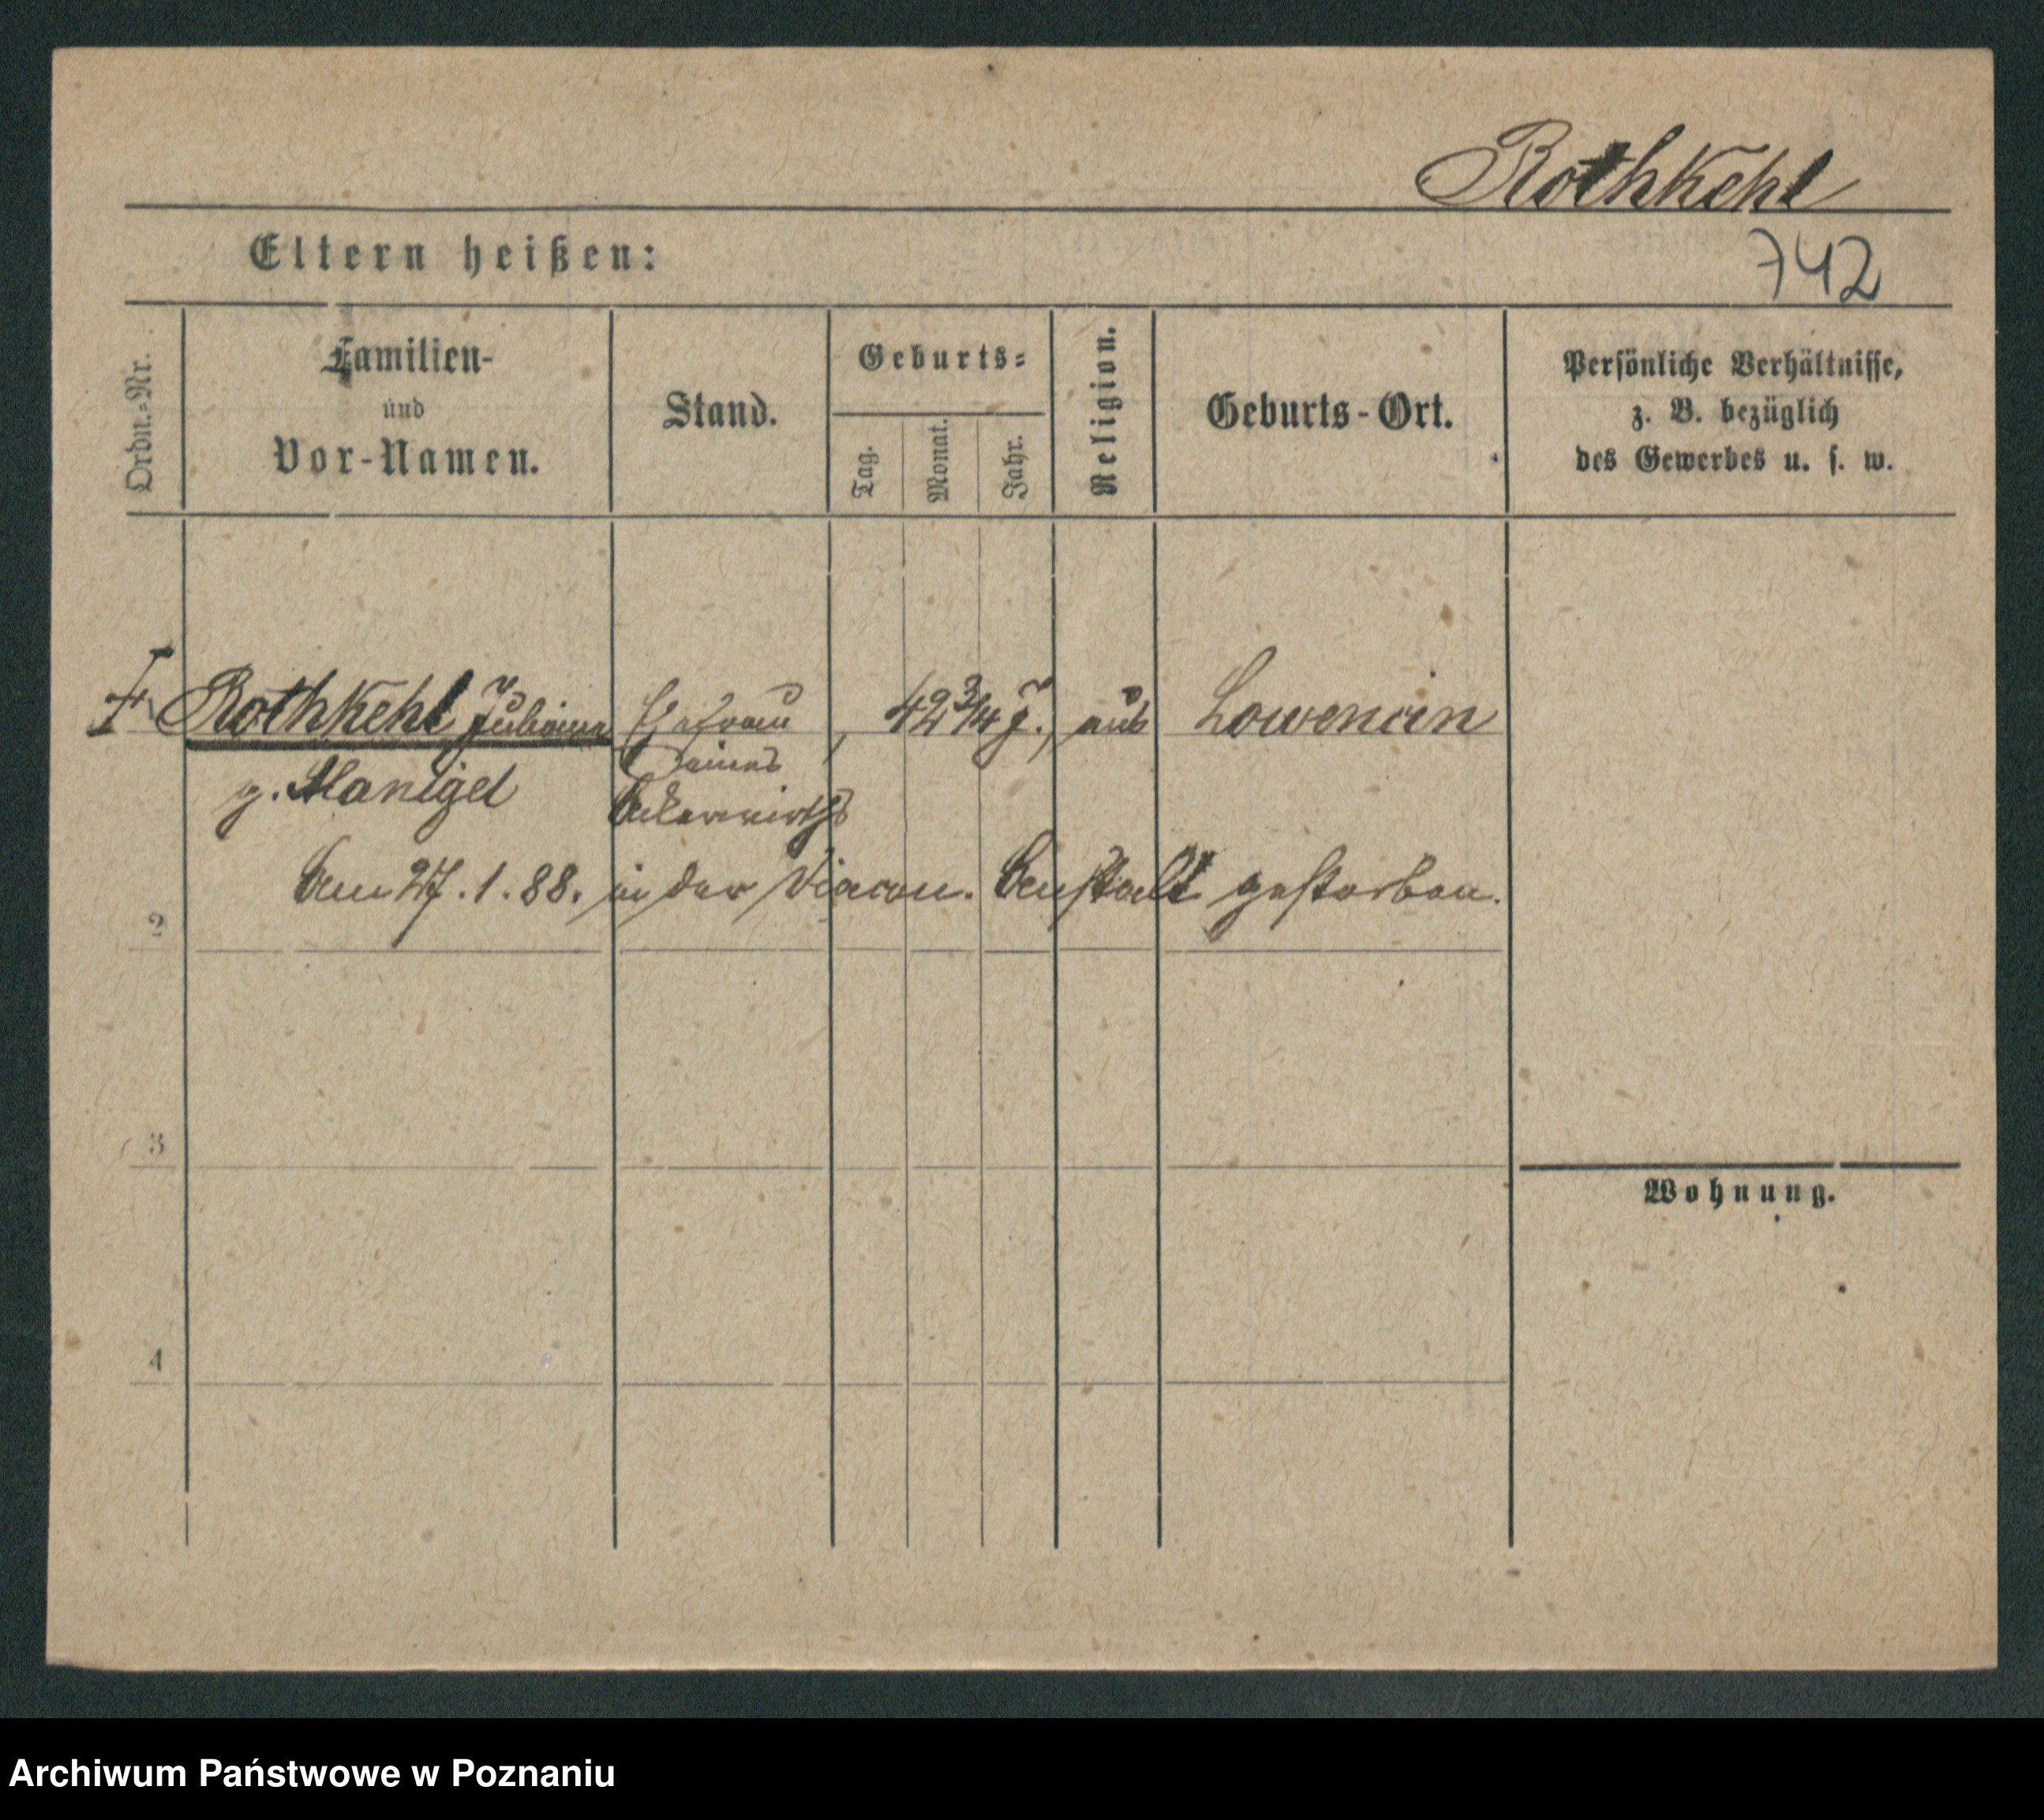 Rothkehl
Eltern heißen:
742
Ordn.-Nr.
Familien-
und
Vor-Namen.
Stand.
Geburts-
Tag.
Monat.
Jahr.
Religion.
Geburts-Ort.
Persönliche Verhältnisse,
z. B. bezüglich
des Gewerbes u. s. w.
Rothkehl Juliana Ehefrau, 42 3/4 J., aus Lowencin
eines
g. Manigel Ackerwirths
Am 27.1.88. in der Diacon. Anstalt gestorben.
2
3
Wohnung.
4
Archiwum Państwowe w Poznaniu